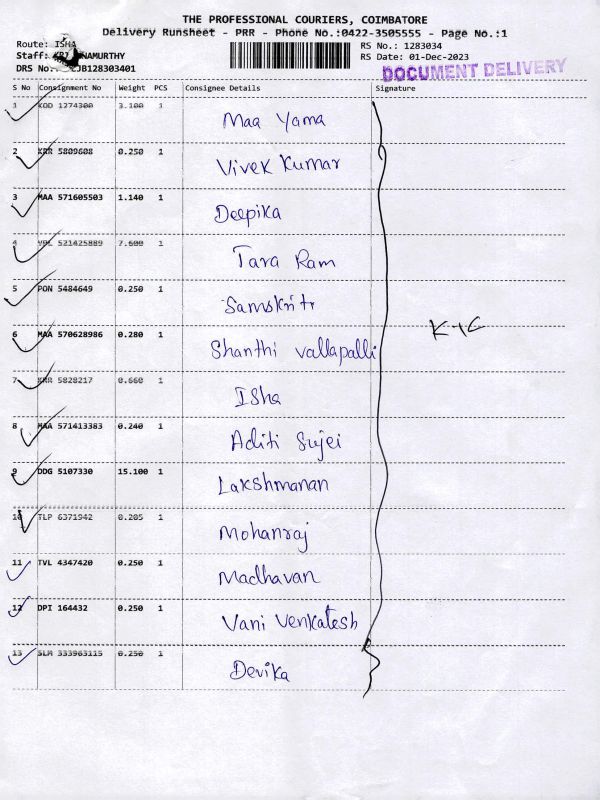 THE PROFESSIONAL COURIERS, COIMBATORE
Delivery Runsheet - PRR - Phone No.:0422-3505555 - Page No.:1
Route: ISHA
RS No.: 1283034
Staff: NAMURTHY
RS Date: 01-Dec-2023
DRS No. JB128303401
DOCUMENT DELIVERY
S No Consignment No Weight PCS Consignee Details Signature
1 KOD 1274300 3.100 1 Maa Yama
2 KRR 5809608 0.250 1 Vivek Kumar
3 MAA 571605503 1.140 1 Deepika
4 521425889 7.600 1 Tara Ram
5 PON 5484649 0.250 1 Samskriti
6 MAA 570628986 0.280 1 Shanthi Vallapalli
7 KRR 5828217 0.660 1 Isha
8 MAA 571413383 0.240 1 Aditi Sujei
9 DDG 5107330 15.100 1 Lakshmanan
10 TLP 6371942 0.205 1 Mohanraj
11 TVL 4347420 0.250 1 Madhavan
12 DPI 164432 0.250 1 Vani Venkatesh
13 SLM 333963115 0.250 1 Devika